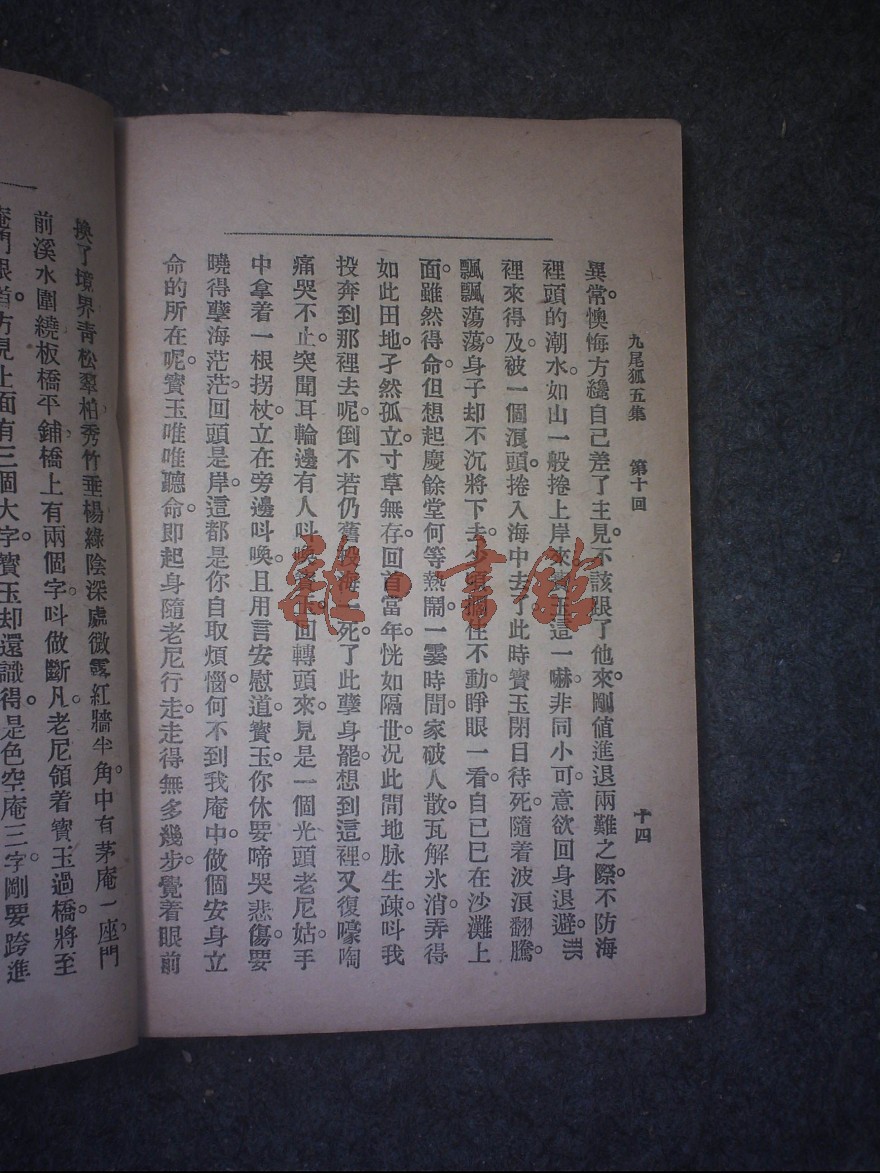 九尾狐五集 第十回 十四
異常。懊悔方纔自己差了主見。不該跟了他來。剛值進退兩難之際。不防海
裡頭的潮水。如山一般捲上岸來。寶玉這一嚇。非同小可。意欲回身退避。那
裡來得及。被一個浪頭。捲入海中去了。此時寶玉閉目待死。隨着波浪翻騰。
飄飄蕩蕩。身子却不沉將下去。少頃擱住不動。睜眼一看。自己已在沙灘上
面。雖然得命。但想起慶餘堂何等熱鬧。一霎時間。家破人散。瓦解氷消。弄得
如此田地。孑然孤立。寸草無存。回首當年。恍如隔世。况此間地脉生疎。呌我
投奔到那裡去呢。倒不若仍舊投海一死。了此孽身罷。想到這裡。又復嚎啕
痛哭不止。突聞耳輪邊有人呌喚寶玉。回轉頭來。見是一個光頭老尼姑。手
中拿着一根拐杖。立在旁邊呌喚。且用言安慰道。寶玉。你休要啼哭悲傷。要
曉得孽海茫茫。回頭是岸。這都是你自取煩惱。何不到我庵中。做個安身立
命的所在呢。寶玉唯唯聽命。即起身隨老尼行走。走得無多幾步。覺着眼前
換了境界。青松翠柏。秀竹垂楊。綠陰深處。微露紅牆半角。中有茅庵一座。門
前溪水圍繞。板橋平鋪。橋上有兩個字。呌做斷凡。老尼領着寶玉過橋。將至
庵門跟首。方見上面有三個大字。寶玉却還識得。是色空庵三字。剛要跨進
雜·書館